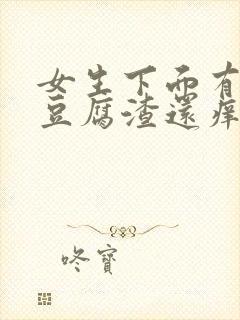 女生下面有
豆腐渣還痒
咚寶